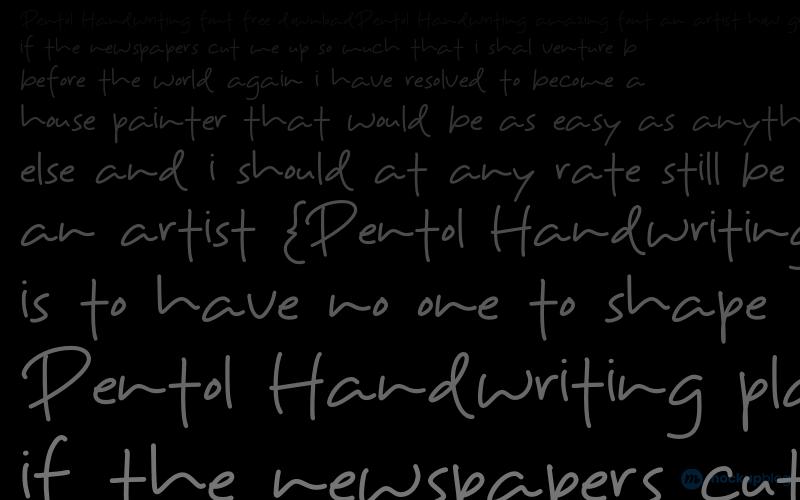 Pentol Handwriting font free download Pentol Handwriting amazing font an artist how
if the newspapers cut me up so much that i shal venture b
before the world again i have resolved to become a
house painter that would be as easy as anyth
else and i should at any rate still be
an artist {Pentol Handwriting
is to have no one to shape
Pentol Handwriting pla
if the newspapers cut